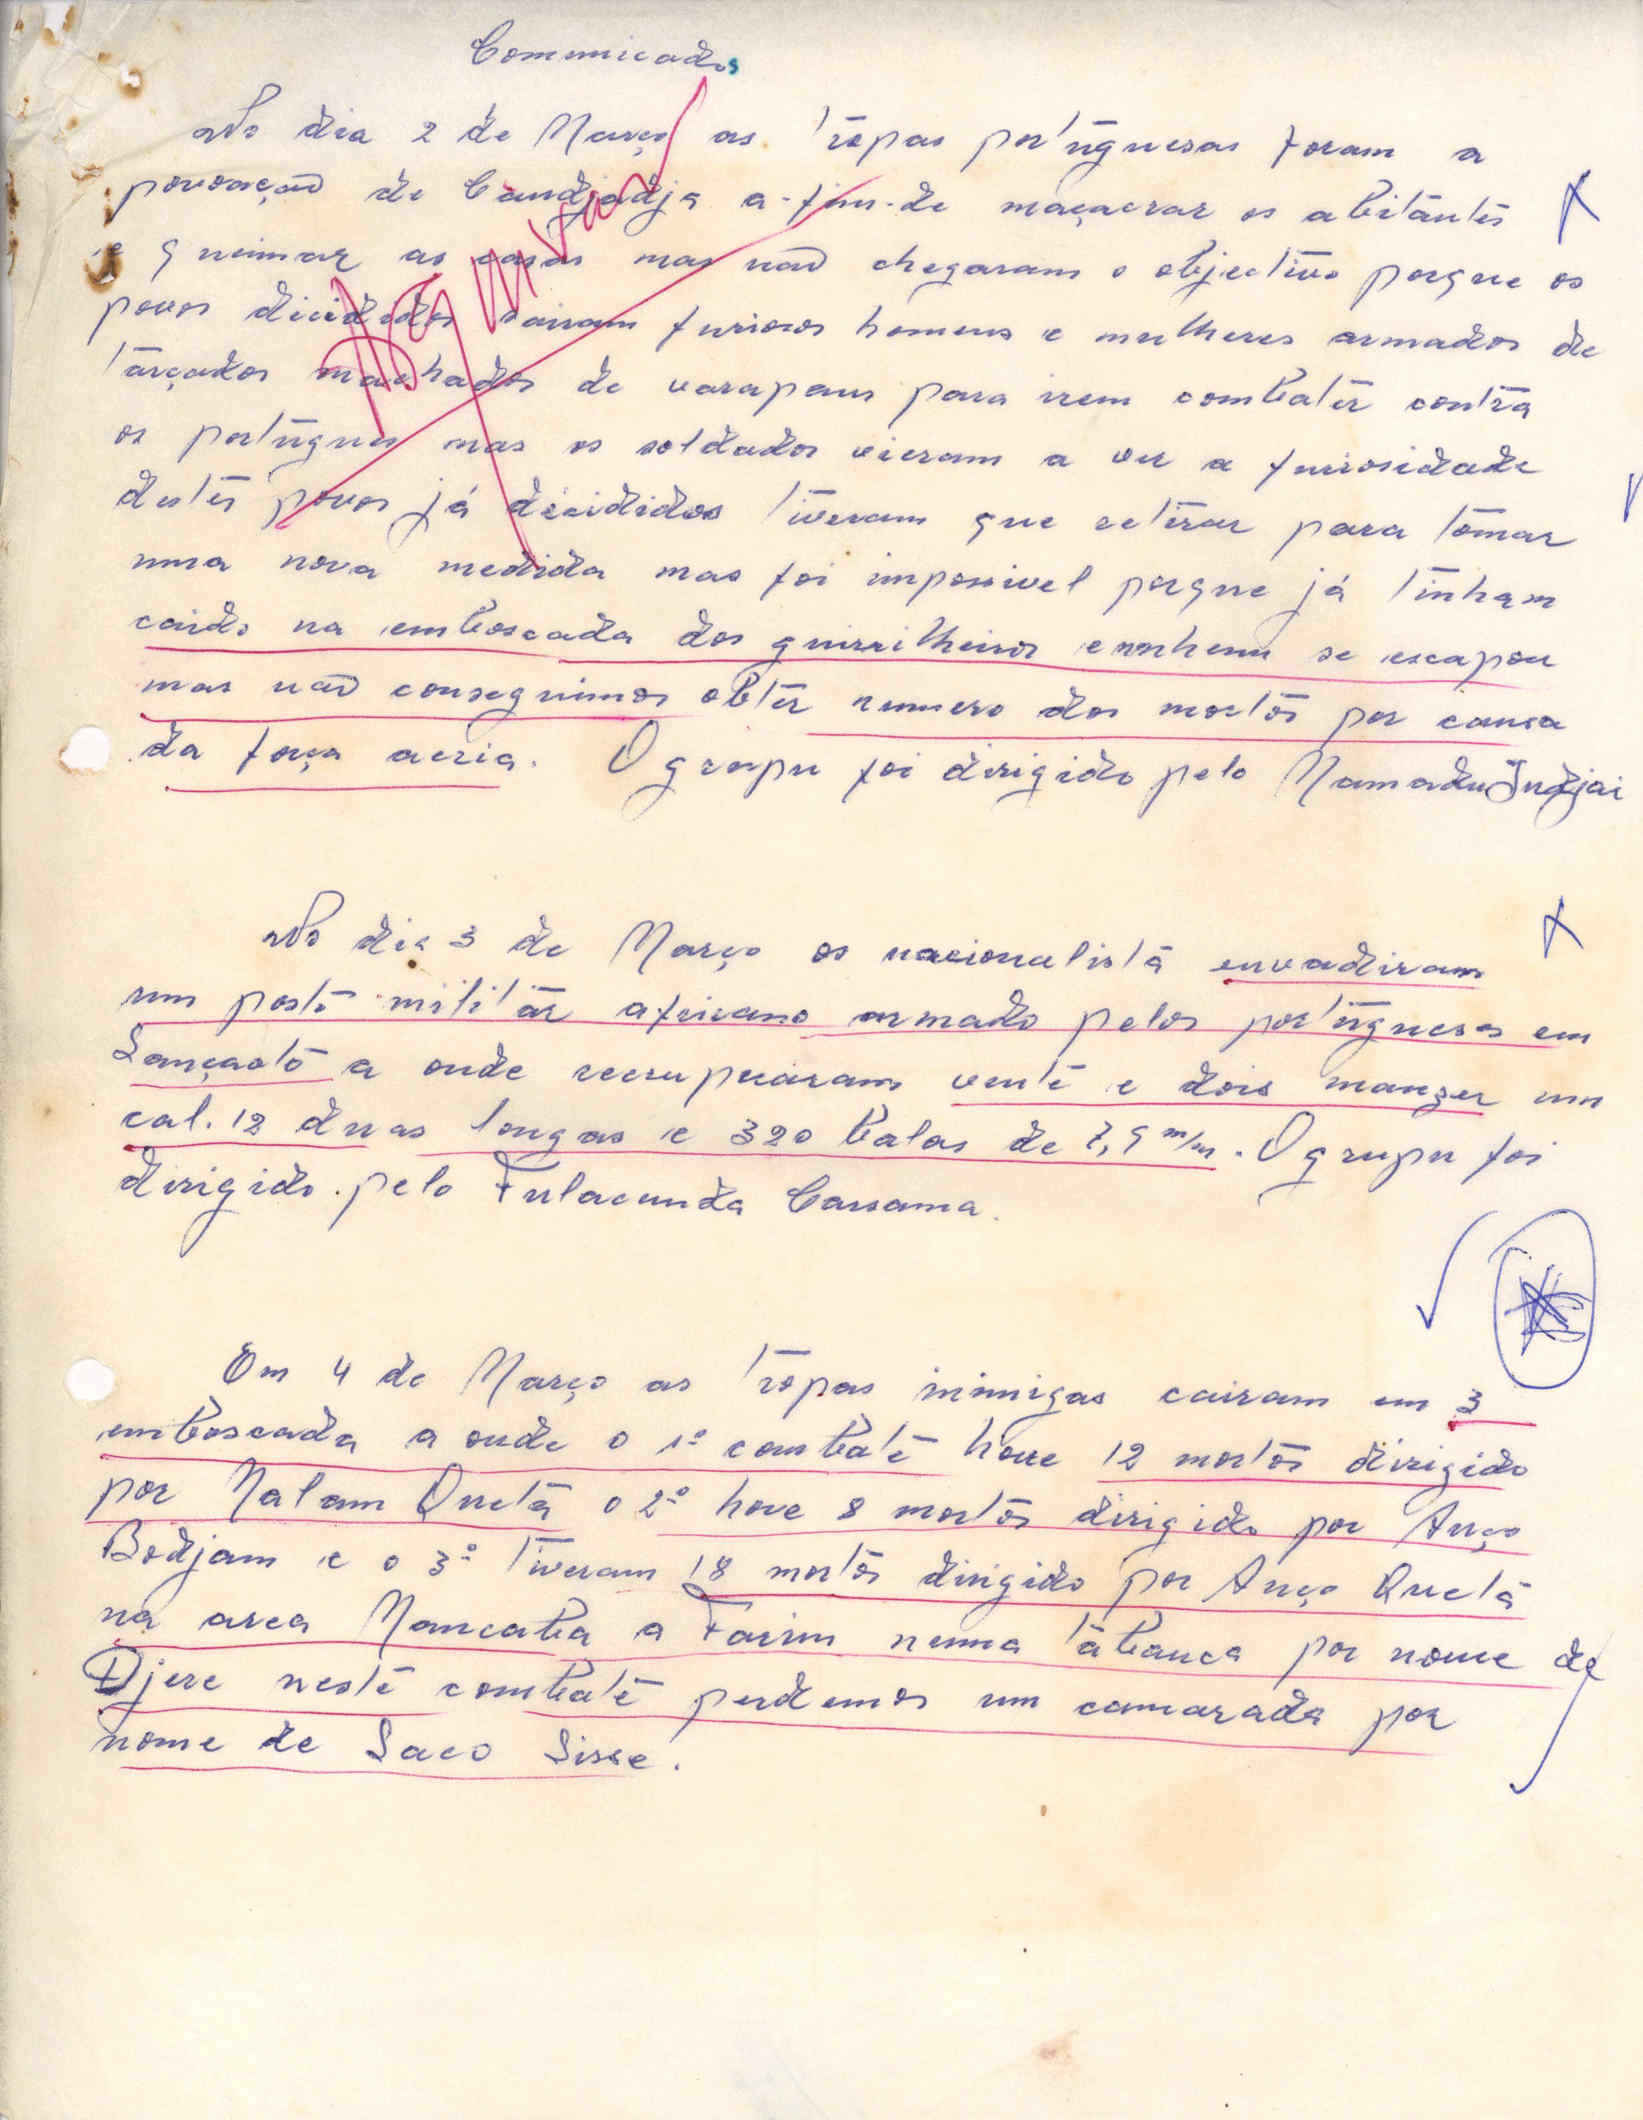 Comunicados
No dia 2 de Março as tropas portuguesas foram a
povoação de Candjadja a-fim-de maçacrar os abitantes
e queimar as casas mas não chegaram o objectivo porque os
povos dicididos sairam furiosos homens e mulheres armados de
tarçados machados de varapaus para irem combater contra
os portugues mas os soldados vieram a ver a furiosidade
destes povos já dicididos tiveram que retirar para tomar
uma nova medida mas foi impossivel porque já tinham
caido na emboscada dos guirrilheiros e se escapou
mas não conseguimos obter numero dos mortos por causa
da força aeria. O grupu foi dirigido pelo Mamadu Indjai
No dia 3 de Março os nacionalista envadiram
um posto militar africano armado pelos portugueses em
Sançanto a onde vente e dois mauzer um
cal. 12 duas longas e 320 balas de 7,9 m/m. O grupu foi
dirigido pelo Fulacunda Cassama.
Em 4 de Março as tropas inimigas cairam em 3
emboscada a onde o 1º combate houve 12 mortos dirigido
por Malam Quetá o 2º hove 8 mortos dirigido por Anço
Bodjam e o 3º tiveram 18 mortos dirigido por Anço Quetá
na area Mancaba a Farim numa tabanca por nome de
Djere neste combate perdemos um camarada por
nome de Saco Sisse.